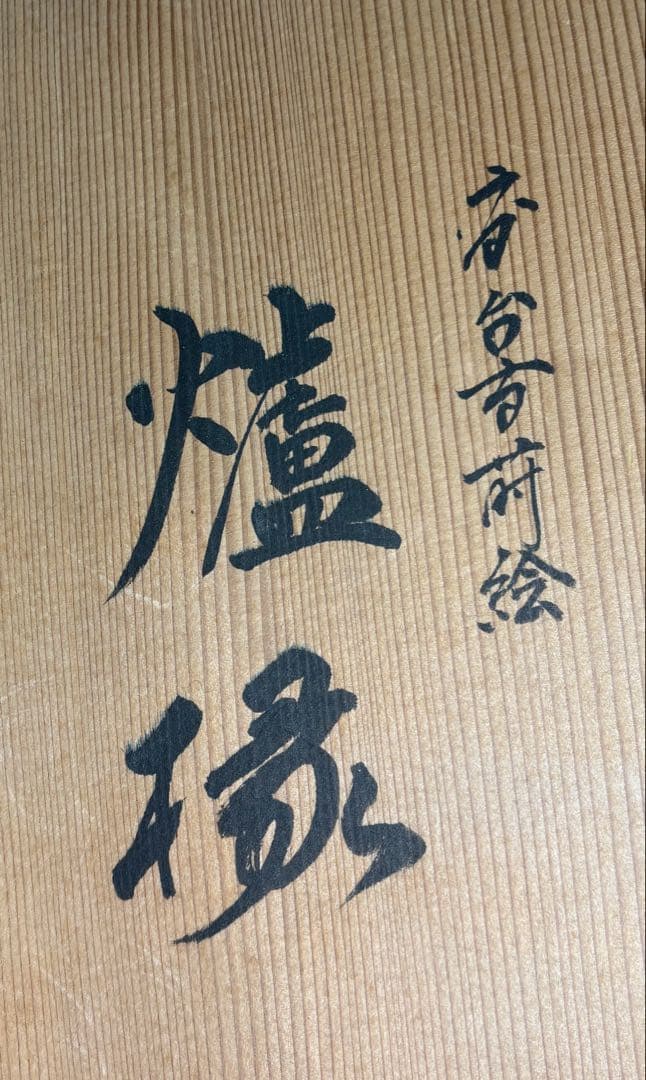 高台寺蒔絵
爐椽